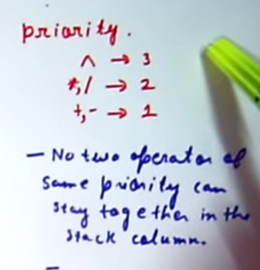 priority.
^ → 3
*,/ → 2
+,- → 1
– No two operator of
same priority can
stay together in the
stack column.
–